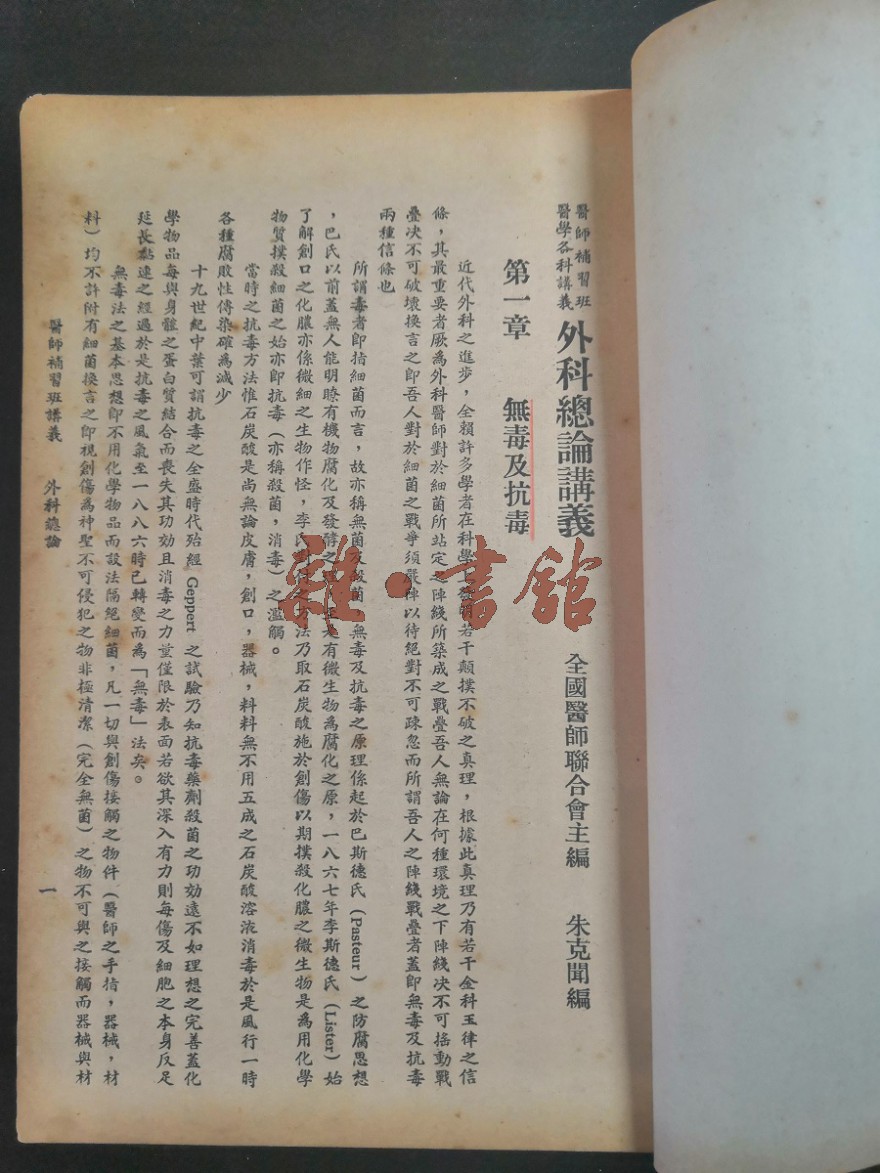 醫師補習班
醫學各科講義
外科總論講義
全國醫師聯合會主編
朱克聞編
第一章　無毒及抗毒
近代外科之進步，全賴許多學者在科學上發明若干顛撲不破之真理，根據此真理乃有若干金科玉律之信
條，其最重要者厥為外科醫師對於細菌所站定之陣綫所築成之戰壘吾人無論在何種環境之下陣綫决不可搖動戰
壘决不可破壞換言之即吾人對於細菌之戰爭須嚴陣以待絕對不可疎忽而所謂吾人之陣綫戰壘者蓋即無毒及抗毒
兩種信條也
所謂毒者即指細菌而言，故亦稱無菌及殺菌，無毒及抗毒之原理係起於巴斯德氏（Pasteur）之防腐思想
，巴氏以前蓋無人能明瞭有機物腐化及發酵之有微生物為腐化之原，一八六七年李斯德氏（Lister）始
了解創口之化膿亦係微細之生物作怪，李氏對付之方法乃取石炭酸施於創傷以期撲殺化膿之微生物是為用化學
物質撲殺細菌之始亦即抗毒（亦稱殺菌，消毒）之濫觴。
當時之抗毒方法惟石炭酸是尚無論皮膚，創口，器械，料料無不用五成之石炭酸溶液消毒於是風行一時
各種腐敗性傳染確為減少
十九世紀中葉可謂抗毒之全盛時代殆經 Geppert 之試驗乃知抗毒藥劑殺菌之功効遠不如理想之完善蓋化
學物品每與身體之蛋白質結合而喪失其功効且消毒之力量僅限於表面若欲其深入有力則每傷及細胞之本身反足
延長黏連之經過於是抗毒之風氣至一八八六時已轉變而為「無毒」法矣。
無毒法之基本思想即不用化學物品而設法隔絕細菌，凡一切與創傷接觸之物件（醫師之手指，器械，材
料）均不許附有細菌換言之即視創傷為神聖不可侵犯之物非極清潔（完全無菌）之物不可與之接觸而器械與材
醫師補習班講義　外科總論
一
雜·書館